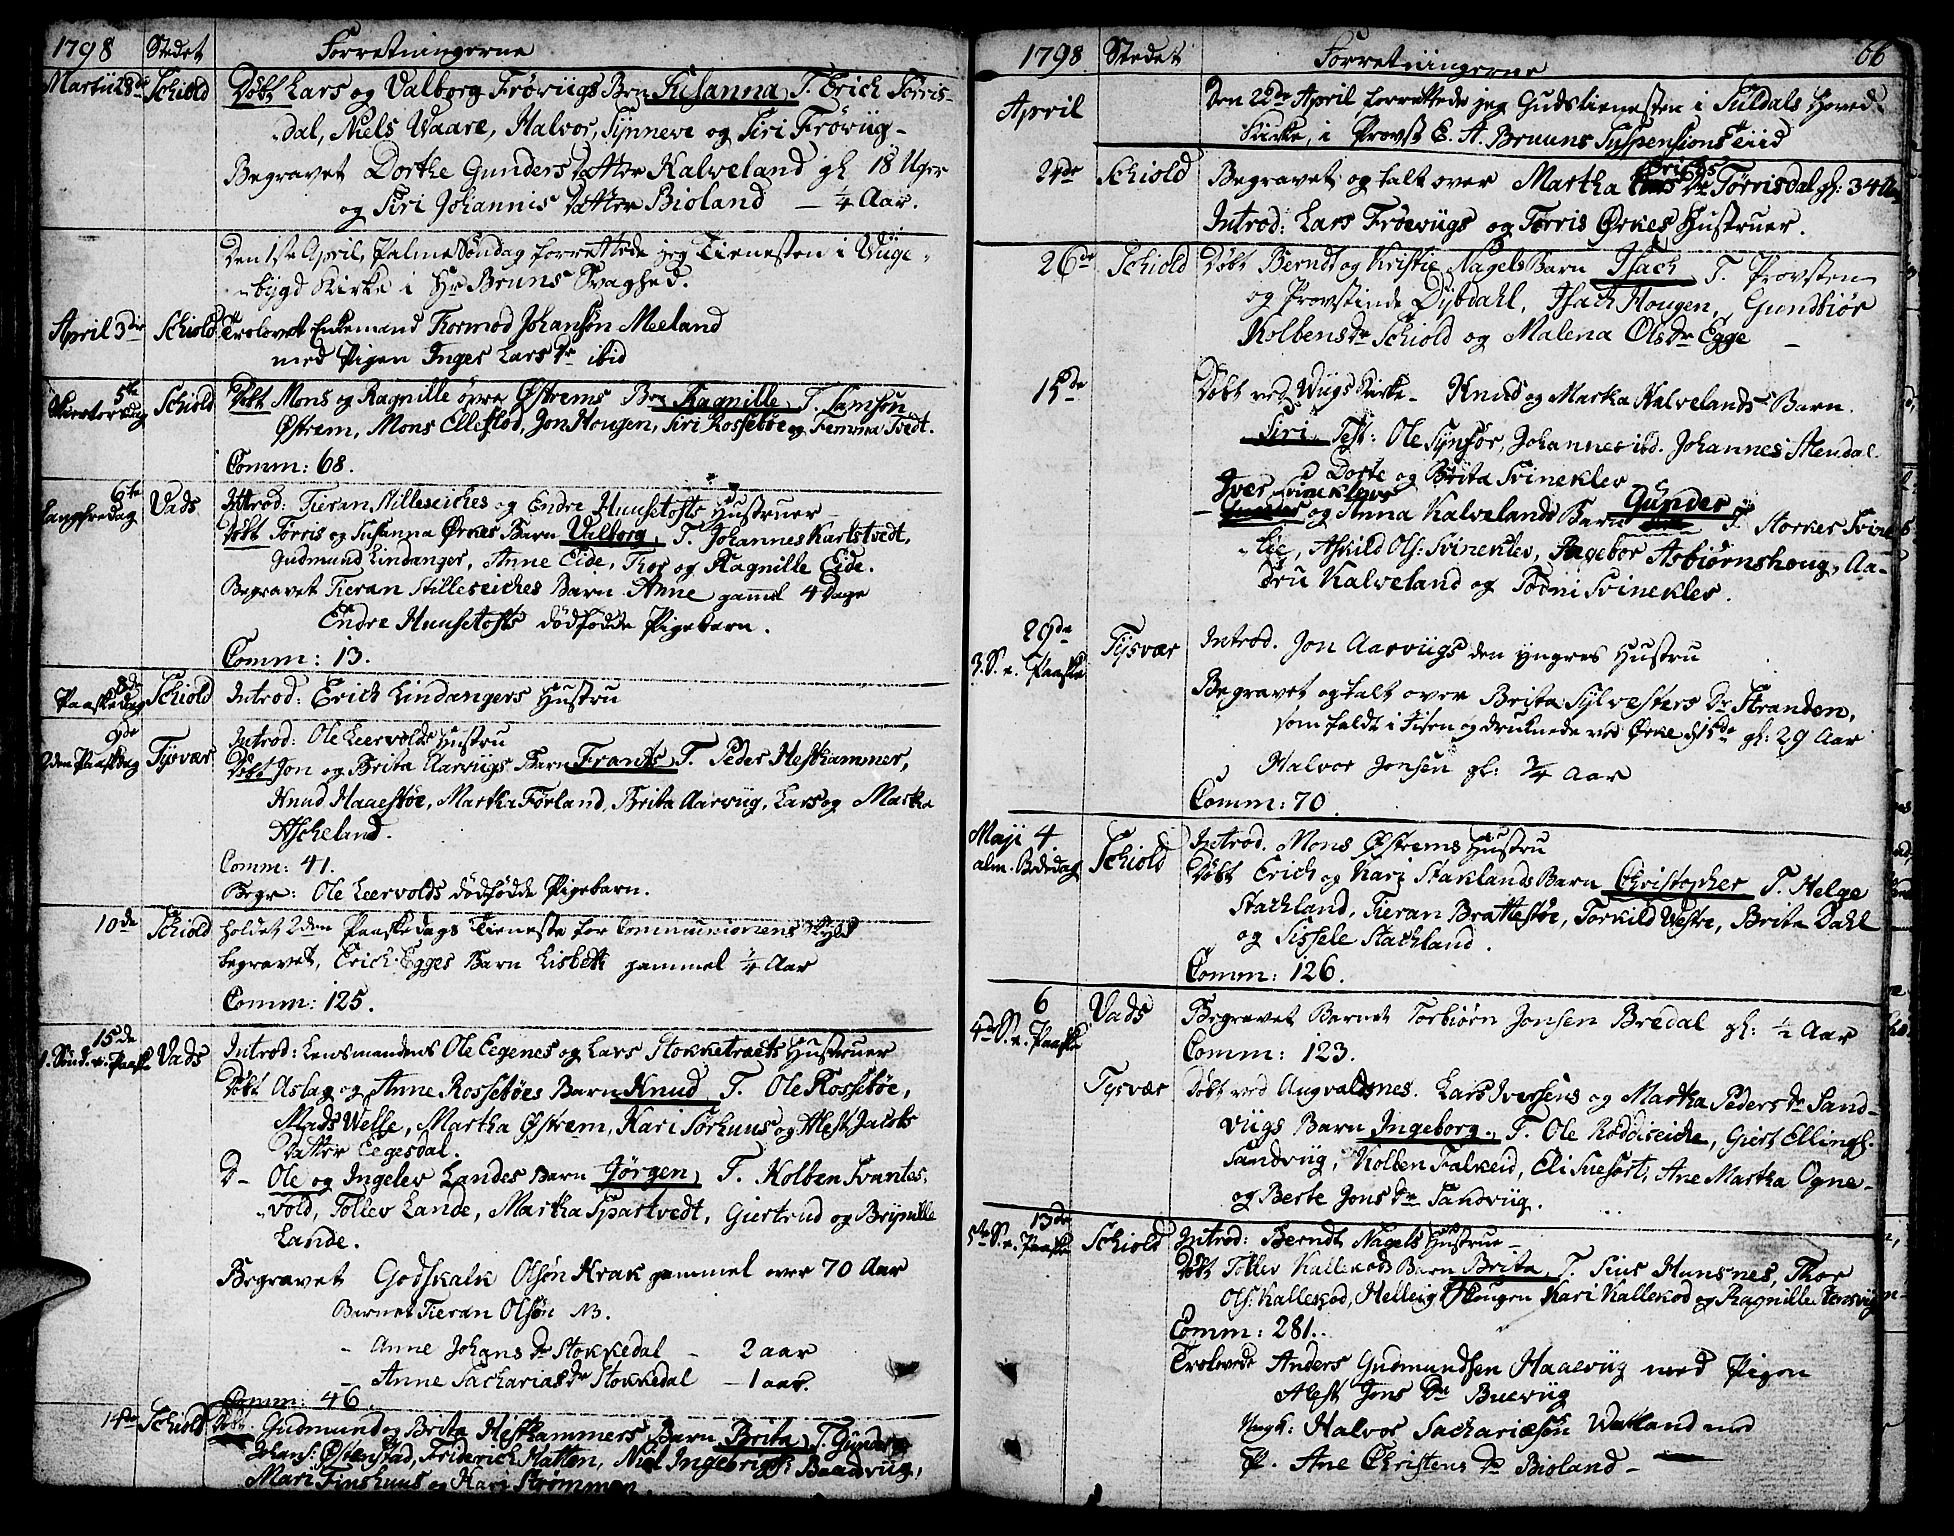 1798 Stedet Forretningerne
Martii 28de Schiold Døbt Lars og Valborg Frøviigs Brn Susanna, T. Erich Tørris-
dal, Niels Waare, Halvor, Synneve og Siri Frøviig -
Begravet Dorthe Gunders Datter Kalveland gl 18 Uger
og Siri Johannis Datter Bioland - ¼ Aar.
Den 1ste April, Palme Søndag forrettede jeg Tienesten i Viige-
bygd Kirke i Hr Bruns Svaghed.
April 3die Schiold Trolovet Enkemand Thormod Johansøn Meeland
med Pigen Inger Lars Dr ibid
5te Skiertorsdag Schiold Døbt Mons og Ragnille øvre Østrems Brn Ragnille, T. Samson
Østrem, Mons Ellestod, Jon Hougen, Siri Rossebøe og Femma Tvedt.
Comm: 68.
6te Langfredag Vads Introd: Tieran Stilleseiches og Endre Huusetofts Hustruer
Døbt Torris og Susanna Ørkes Barn Valborg, T. Johannes Kartstvedt,
Gudmund Lindanger, Anne Eide, Thor og Ragnille Eide.
Begravet Tieran Stilleseiches Barn Anne gaml 4 Dage
Endre Huusetofts dødfødde Pigebarn.
Comm: 13.
8de Paaskedag Schiold Introd: Erich Lindangers Hustru
9de 2den Paaskedag Tysvær Introd: Ole Leervolds Hustru
Døbt Jon og Brita Aarvugs Barn Frants T. Peder Hestkammer,
Knud Haaestøe, Martha Førland, Brita Aarviig, Lars og Martha
Ascheland.
Comm: 41.
Begr: Ole Leervolds dødfødde Pigebarn.
10de Schiold holdet 2den Paaskedags Tieneste for Communionens Skyld
begravet, Erich Egges Barn Lisbeth gammel ¼ Aar
Comm: 125.
15de 1. Sønd. e. Paaske Vads Introd: Lensmandens Ole Eegenes og Lars Stokketraets Hustruer
Døbt Aslag og Anne Rossebøes Barn Knud T. Ole Rossebøe,
Mads Welle, Martha Østrem, Kari Sørhuus og Alest Jacobs
Datter Eegesdal.
D- Ole og Ingelev Landes Barn Jørgen, T. Kolben Svantes-
vold, Tollev Lande, Martha Spartvedt, Giertrud og Brynille
Lande.
Begravet Godskalk Olsøn Krak gammel over 70 Aar
Barnet Tieran Olsøn N3.
- Anne Johans Dr Stokkedal - 2 aar
- Anne Sacharias Dr Stokkedal - 1 aar.
Comm: 46.
18de Schiold Døbt Gudmund og Brita Hestkammers Barn Brita, T. Gunder
Johans: Østenstad, Friderich Hatten, Niel Ingebrigts: Baadviig,
Mari Finshuus og Kari Strømmen.
1798 Stedet Forretningerne 66
April Den 22de April forrettede jeg Gudstienesten i Suldals Hoved-
Kirke, i Provst E. A. Bruuns Suspensions Tiid
24de Schiold Begravet og talt over Martha Erichs Dr Tørrisdal gl: 34 Aar
Introd: Lars Frøeviigs og Torris Ørkes Hustruer.
26de Schiold Døbt Berndt og Kristie Nagels Barn Isach T. Provsten
og Provstinde Dybdahl, Isach Hougen, Gundbiør
Kolbens Dr Schiold og Malena Ols Dr Egge -
15de Døbt ved Wiigs Kirke - Knud og Martha Kalvelands Barn.
Siri, Test: Ole Synsør, Johannes ibd. Johannes Stendal.
Dorte og Brita Svineklev
Iver Svineklevs
og Anna Kalvelands Barn Gunder T. Storker Svine-
lie, Askild Ols: Svineklev, Ingebor Asbiørnshoug, Aa-
dru Kalveland og Todni Svineklev.
29de 3. S. e. Paaske Tysvær Introd. Jon Aarviigs den yngres Hustru
Begravet og talt over Brita Sylvesters Dr Stranden,
som faldt i Søen og druknede ved Ørke d 15de gl: 29 Aar
Halvor Jonsen gl: ¾ Aar
Comm: 70.
Maji 4 alm. Bededag Schiold Introd. Mons Østrems Hustru
Døbt Erich og Kari Staklands Barn Christopher T. Helge
Stachland, Tieran Brattestøe, Torkild Westre, Brita Dahl
og Sissele Stachland.
Comm: 126.
6 4de S. e. Paaske Vads Begravet Barnet Torbiørn Jonsen Bredal gl: ½ Aar
Comm: 123.
Tysvær Døbt ved Augvaldsnes. Lars Iversens og Martha Peders Dr Sand-
viigs Barn Ingeborg, T. Ole Røddiseiche, Giert Ellings:
Sandviig, Kolben Falkeid, Eli Suesort, Ane Martha Ogne-
og Berte Jons Dr Sandviig.
13de 5te S. e. Paaske Schiold Introd: Berndt Nagels Hustrue -
Døbt Tollev Kallekods Barn Brita, T. Sius Hunsnes, Thor
Ols: Kallekod, Helleig Skougen Kari Kallekod og Ragnille Stensviig
Comm: 281.
Trolovede Anders Gudmundsen Haalviig med Pigen
Alest Jons Dr Bueviig
Ungk: Halvor Sachariesøn Watland med
P. Ane Christens Dr Bioland -